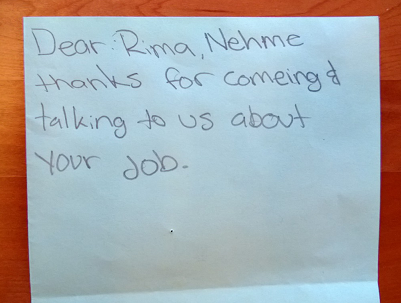 Dear: Rima, Nehme
thanks for comeing &
talking to us about
your Job.